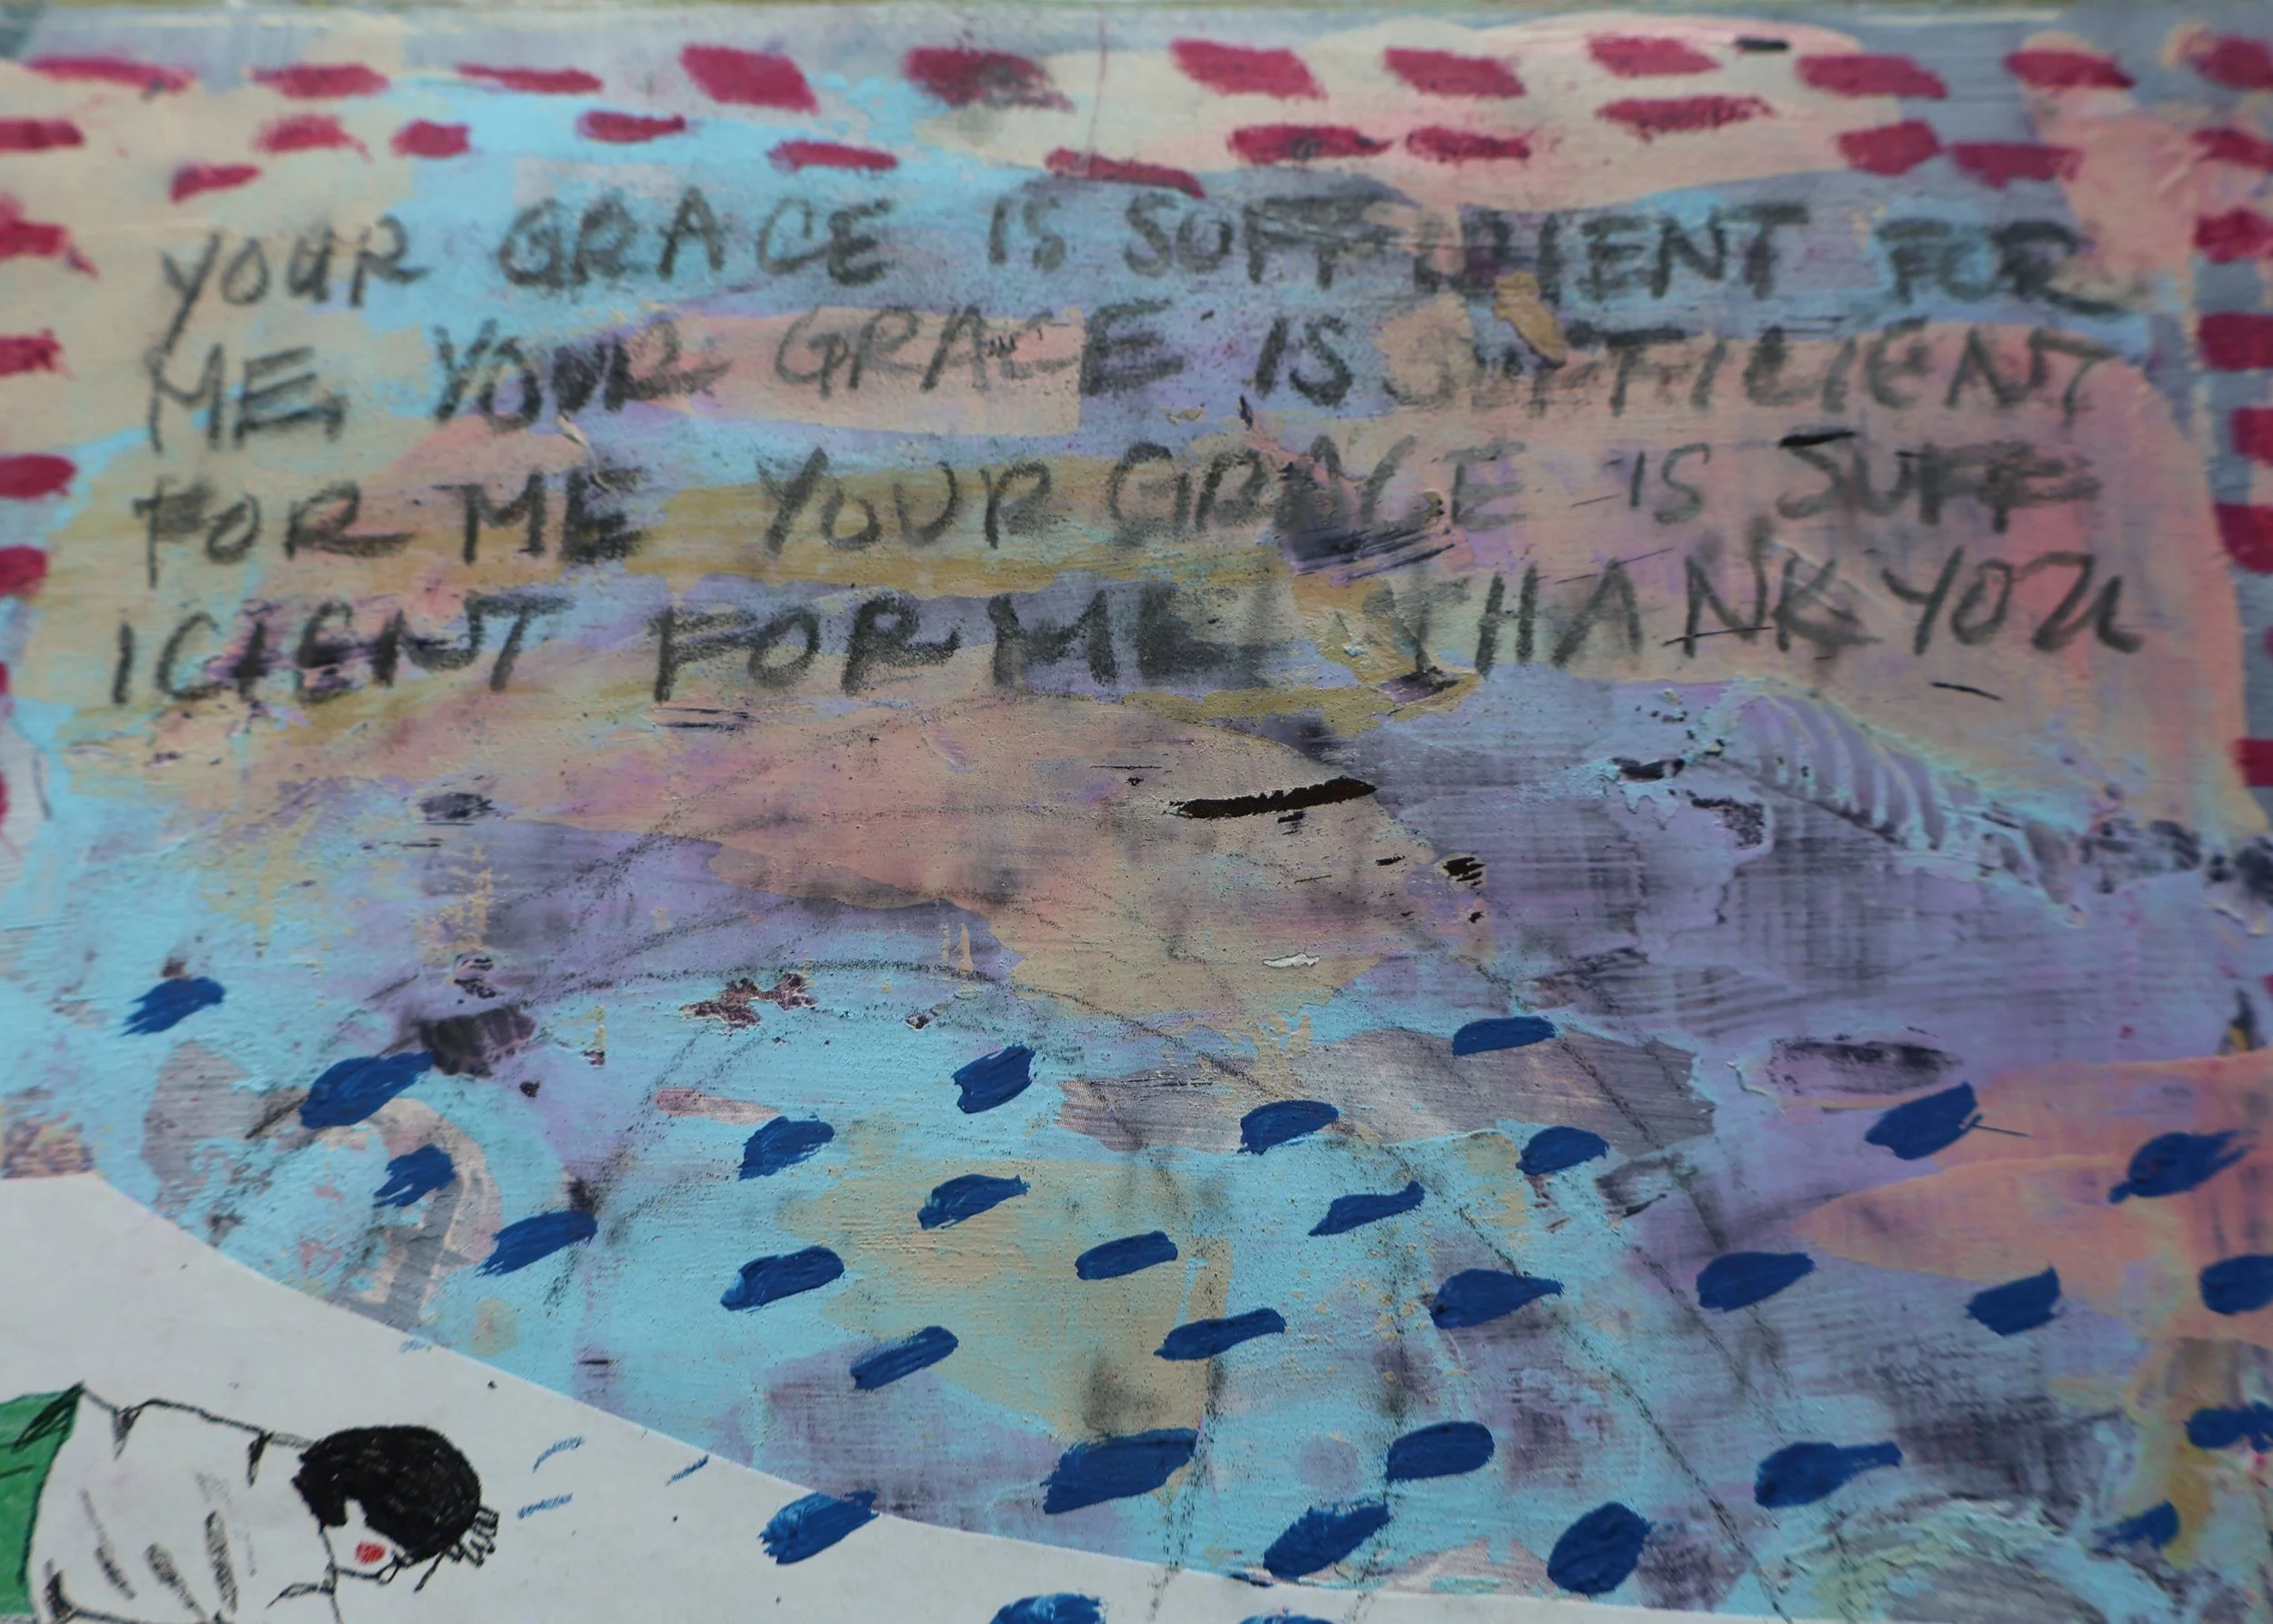 YOUR GRACE IS SUFFICIENT FOR
ME YOUR GRACE IS SUFFICIENT
FOR ME YOUR GRACE IS SUFF
ICIENT FOR ME THANK YOU